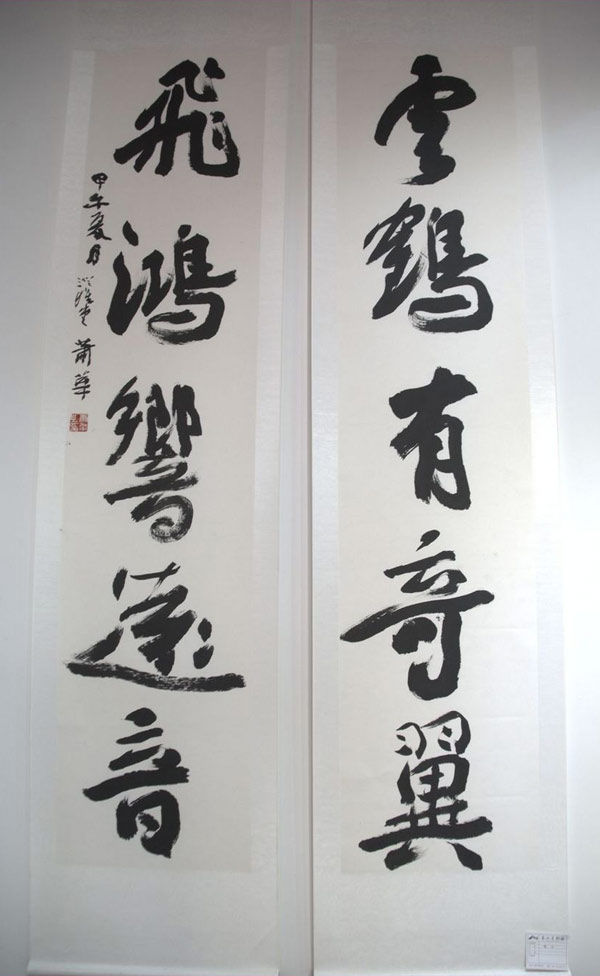 雲鶴有奇翼
飛鴻響遠音
甲午夏月
蕭華